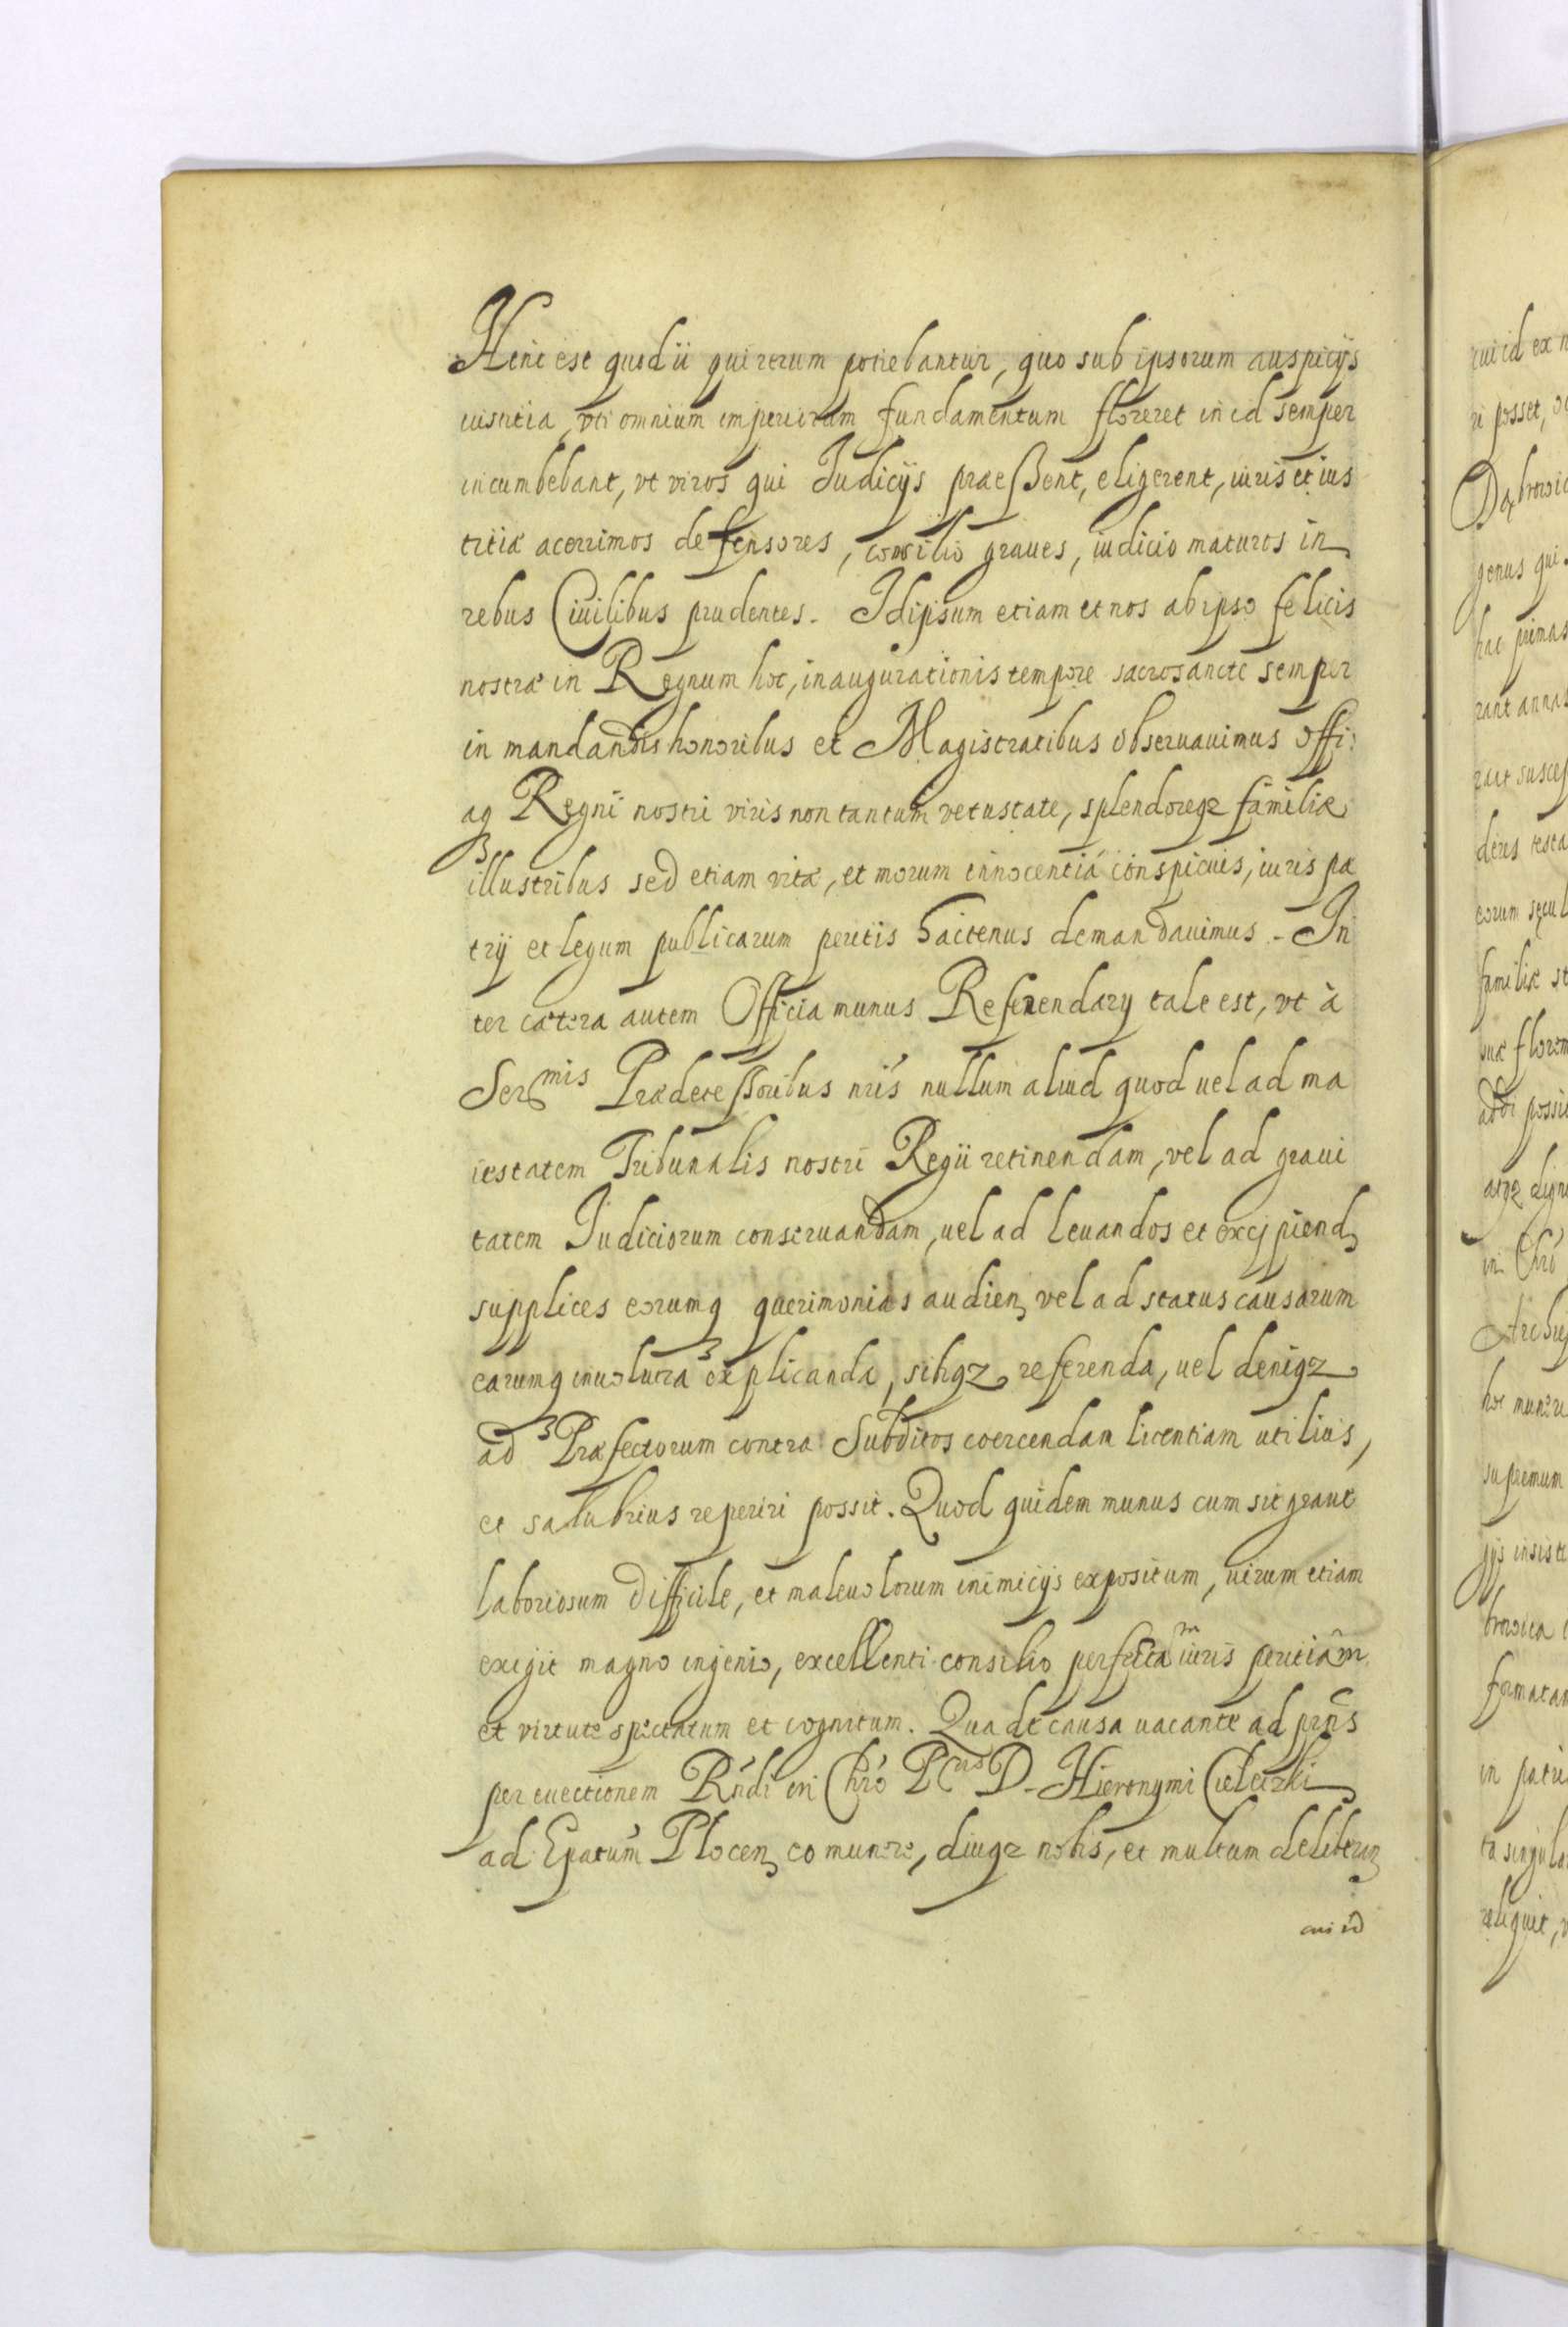 Hinc est quod ii qui rerum potiebantur, quo sub ipsorum auspicijs
iustitia, vti omnium imperiorum fundamentum floreret in id semper
incumbebant, vt viros qui Iudicijs praeßent, eligerent, iuris et ius
titiæ acerrimos defensores, consilio graues, iudicio maturos in
rebus Ciuilibus prudentes. Idipsum etiam et nos ab ipso felicis
nostræ in Regnum hoc, inaugurationis tempore sacrosancte semper
in mandandis honoribus et Magistratibus obseruauimus offi:
aq Regni nostri viris non tantum vetustate, splendoreqz familiæ
illustribus sed etiam vitæ, et morum innocentiá conspicuis, iuris pa
trij et legum publicarum peritis hactenus demandauimus. In
ter cætera autem Officia munus Referendarij tale est, vt à
Sermis Prædeceßoribus nris nullum aliud quod uel ad ma
iestatem Tribunalis nostri Regii retinendam, vel ad graui
tatem Iudiciorum conseruandam, uel ad leuandos et excipiend
supplices eorumq querimonias audien vel ad status causarum
earumq inuolucra explicanda, sibiqz referenda, uel deniqz
ad Præfectorum contra Subditos coercendam licentiam utilius,
et salubrius reperiri possit. Quod quidem munus cum sit graue
laboriosum difficile, et maleuolorum inimicijs expositum, uirum etiam
exigit magno ingenio, excellenti consilio perfectam iuris peritiâm
et virtute spectatum et cognitum. Qua de causa uacante ad prns
per euectionem Rndi in Chro Pris D. Hieronymi Cieleczki
ad Epatum Plocen eo munere, diuqz nobis, et multum deliberan
cui id
ruicid ex n
ri posset,
Dąbrowic
genus qui
hac primas
rant annas
rait suscep
deris testa
eorum secul
familiæ st
suæ florem
addi possit
atqz digni
in Chrō
hoc munere
supremum
gijs insiste
browica
formatam
in patri
ta singula
reliquit,